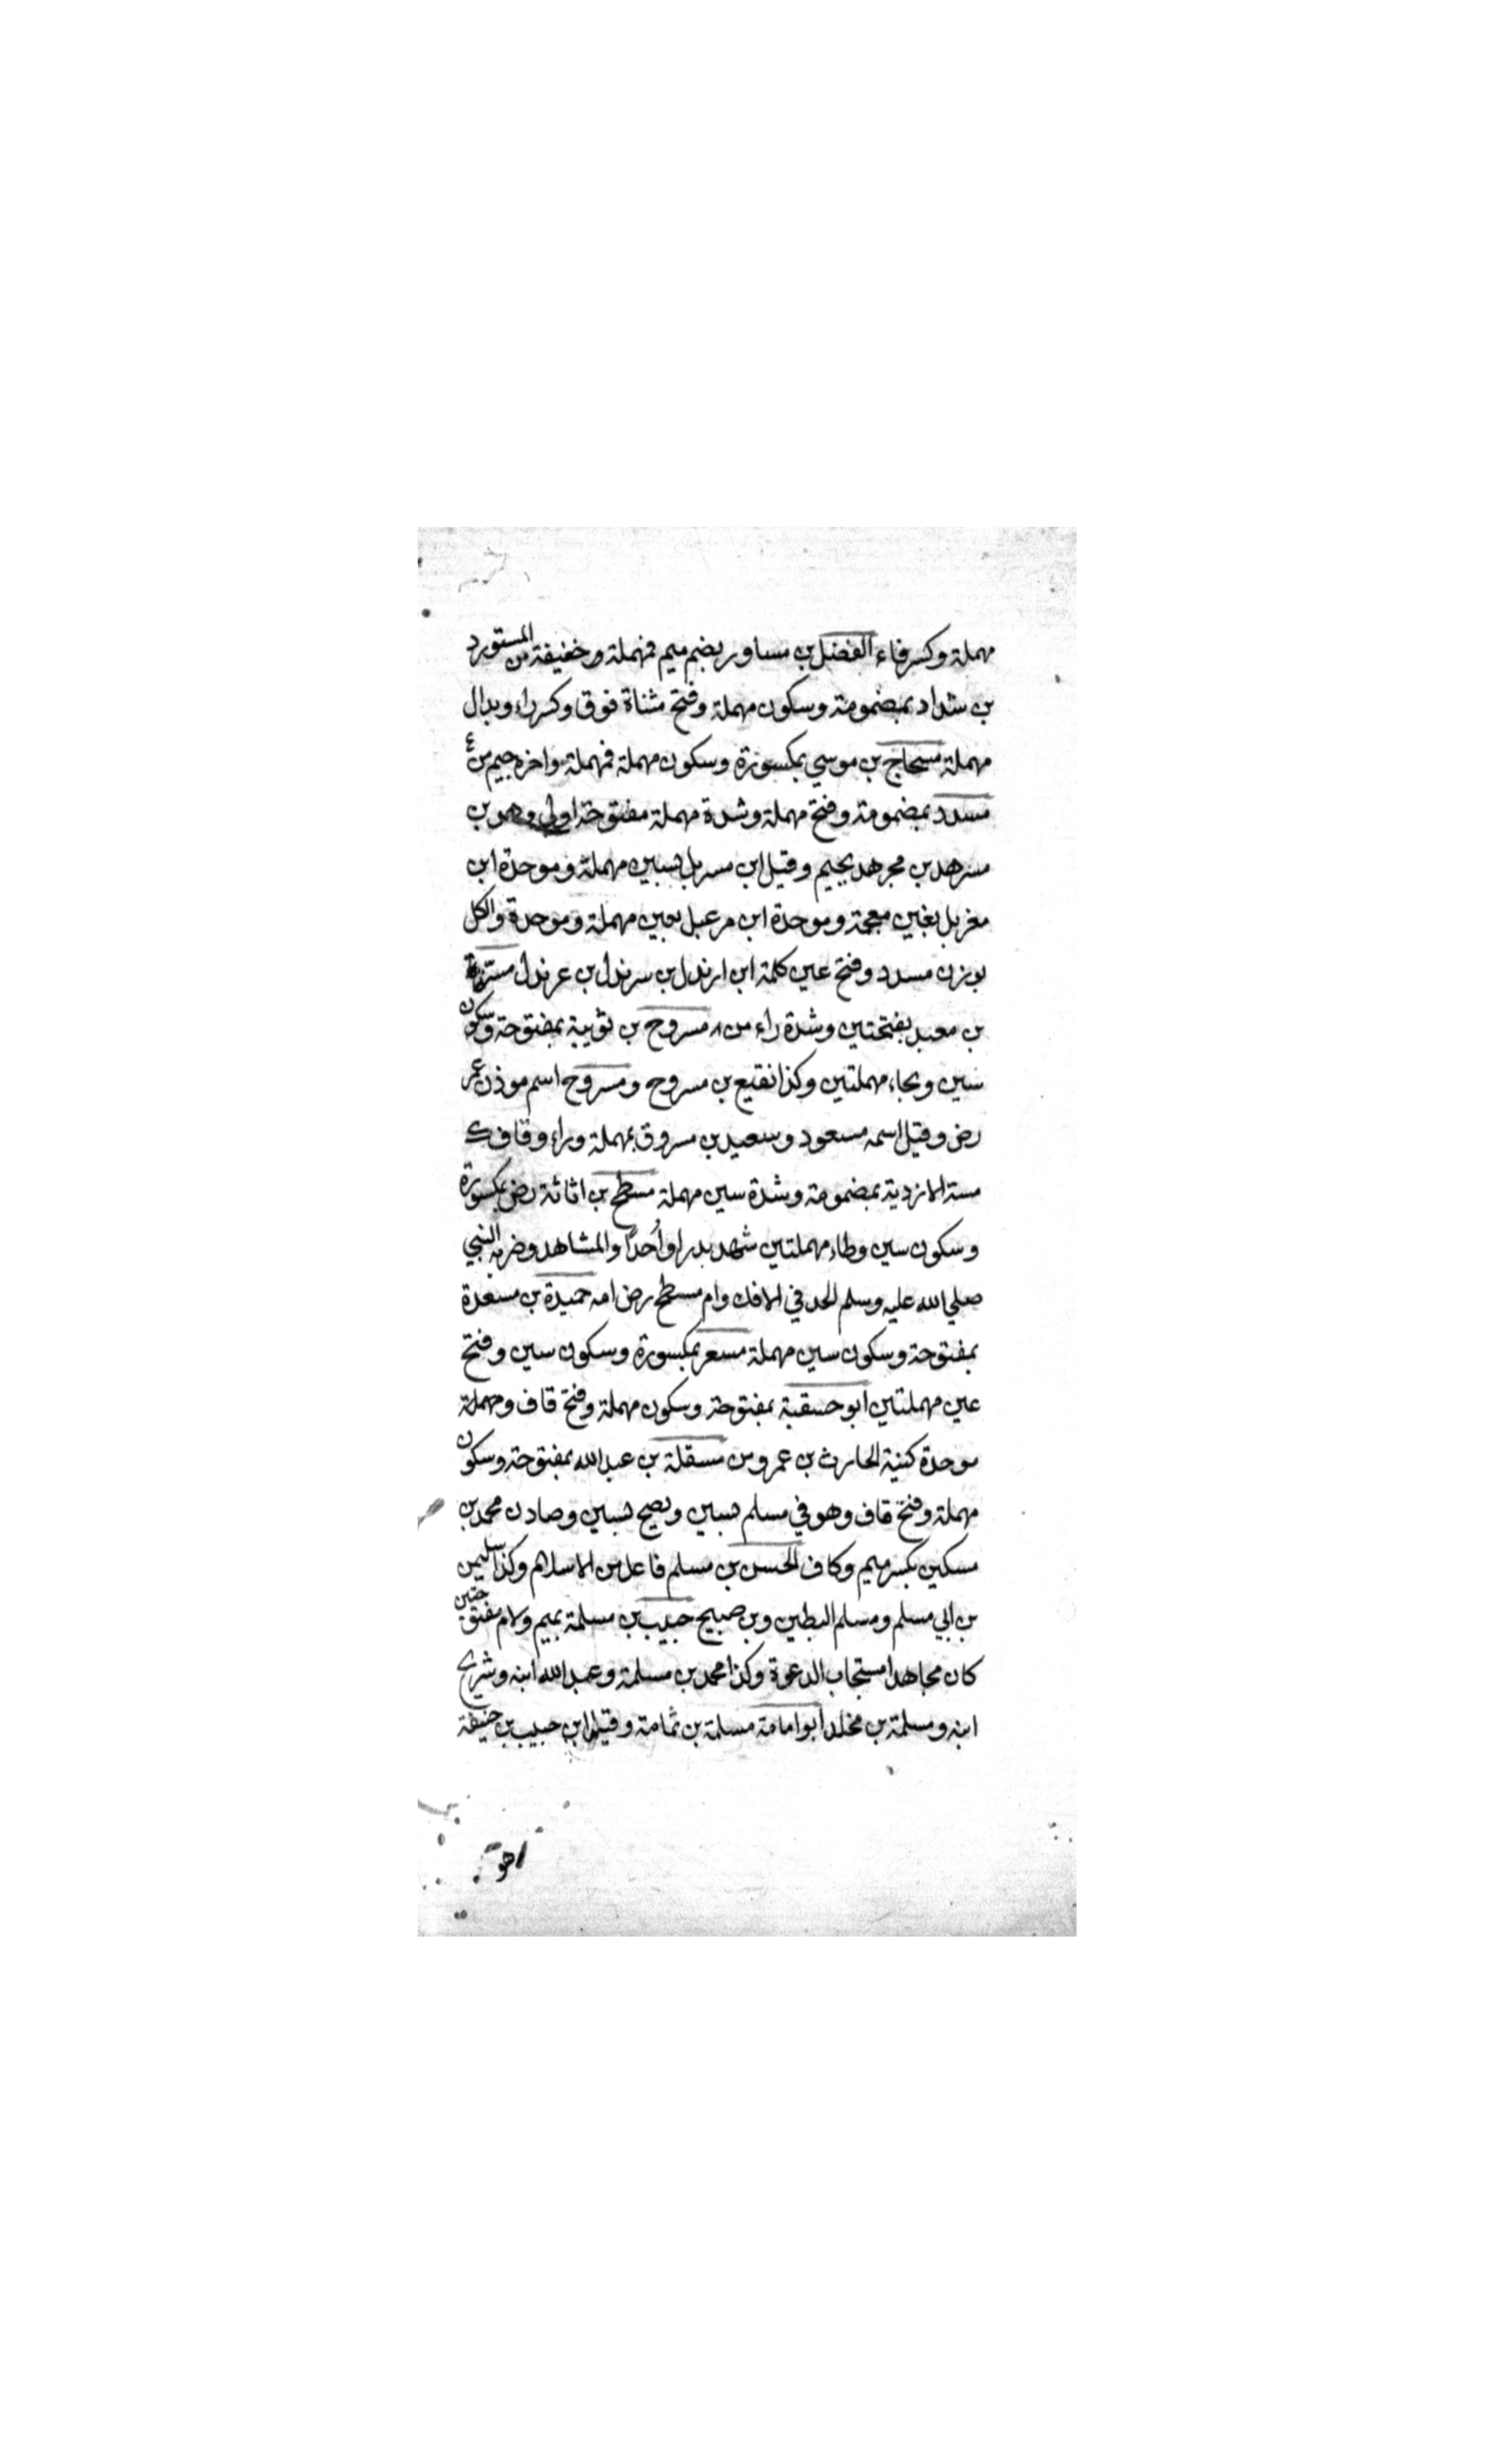 مهملة وكسر فاء الفضل بن مساور بضم ميم فمهملة وخفيفة من المستورد
بن شداد بمضمومة وسكون مهملة وفتح مثناة فوق وكسر راء وبدال
مهملة مسحاج بن موسي بمكسورة وسكون مهملة فمهملة واخره جيم من ع
مسدد بمضمومة وفتح مهملة وشدة مهملة مفتوحة اولي وهو بن
مسرهد بن مجرهد بجيم وقيل ابن مسربل بسين مهملة وموحدة ابن
مغربل بغين معجمة وموحدة ابن مرعبل بعين مهملة وموحدة والكل
بوزن مسدد وفتح عين كلمة ابن ارندل بن سرندل بن عرندل مسرة
بن معبد بفتحتين وشدة راء من ر مسروح بن ثويبة بمفتوحة وسكون
سين وبحاء مهملتين وكذا نقيع بن مسروح ومسروح اسم موذن عمر
رض وقيل اسمه مسعود وسعيد بن مسروق بمهملة وراء وقاف ك
مسة الازدية بمضمومة وشدة سين مهملة مسطح بن اثاثة رض بمكسورة
وسكون سين وطاء مهملتين شهد بدرا وأحدًا والمشاهد وضربه النبي
صلي الله عليه وسلم الحد في الافك وام مسطح رض امه حميدة بن مسعدة
بمفتوحة وسكون سين مهملة مسعر بمكسورة وسكون سين وفتح
عين مهملتين ابو حسقبة بمفتوحة وسكون مهملة وفتح قاف ومهملة
موحدة كنية الحارث بن عمرو من مسقلة بن عبد الله بمفتوحة وسكون
مهملة وفتح قاف وهو في مسلم بسين ويصح بسين وصاد ن محمد بن
مسكين بكسر ميم وكاف الحسن بن مسلم فاعل من الاسلام وكذا سليمن
بن ابي مسلم ومسلم البطين وبن صبيح حبيب بن مسلمة بميم ولام مفتوحتين
كان مجاهدا مستجاب الدعوة وكذا محمد بن مسلمة وعبد الله ابنه وشريح
ابنه ومسلمة بن مخلد ابو امامة مسلمة بن ثمامة وقيل ابن حبيب بن حنيفة